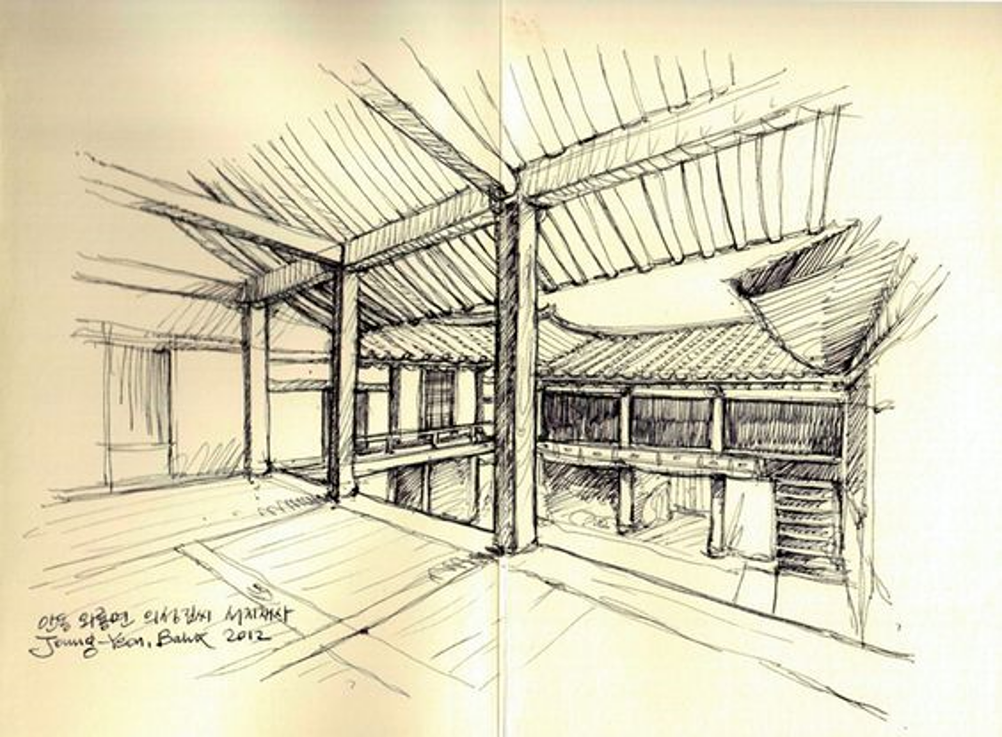 안동 와룡면 의성김씨 서지재사
Joung-Yeon, 2012